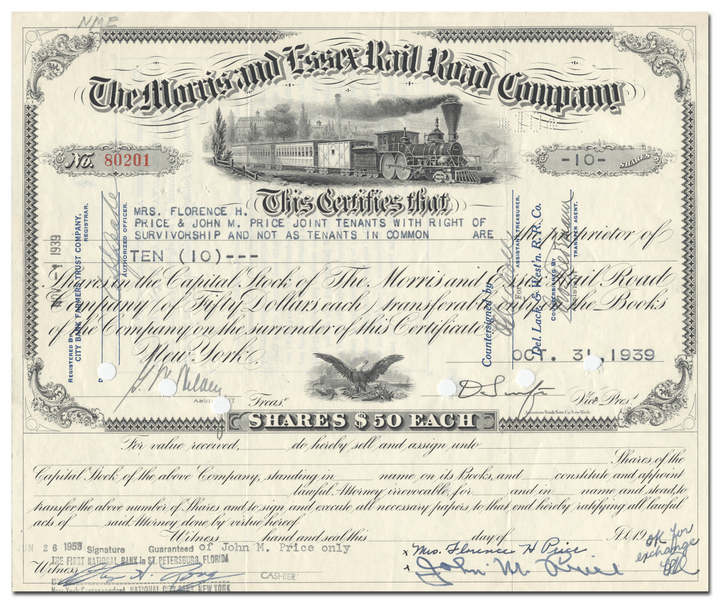 NMF
The Morris and Essex Rail Road Company
No. 80201
-10- SHARES
This Certifies that
MRS. FLORENCE H.
PRICE & JOHN M. PRICE JOINT TENANTS WITH RIGHT OF
SURVIVORSHIP AND NOT AS TENANTS IN COMMON ARE the proprietor of
TEN (10)---
Shares in the Capital Stock of The Morris and Essex Rail Road
Company of Fifty Dollars each, transferable only on the Books
of the Company on the surrender of this Certificate
New York OCT. 31, 1939
Treasr.
Vice Prest.
American Bank Note Co. New York.
SHARES $50 EACH
NOV 1 1939
REGISTERED BY
CITY BANK FARMERS TRUST COMPANY,
REGISTRAR.
AUTHORIZED OFFICER.
Countersigned by
ASSISTANT TREASURER.
For
Del. Lack. & West'n. R. R. Co.
COUNTERSIGNED BY
TRANSFER AGENT.
For value received, do hereby sell and assign unto
Shares of the
Capital Stock of the above Company, standing in name, on its Books, and constitute and appoint
lawful Attorney irrevocable, for and in name and stead, to
transfer the above number of Shares and to sign and execute all necessary papers to that end hereby ratifying all lawful
acts of said Attorney done by virtue hereof
Witness hand and seal this day of A.D. 19
JUN 26 1953 Signature Guaranteed of John M. Price only
THE FIRST NATIONAL BANK in ST. PETERSBURG, FLORIDA
Witness
CASHIER
New York Correspondent NATIONAL CITY BANK, NEW YORK
x Mrs. Florence H Price
x John M. Price
OK for
exchange